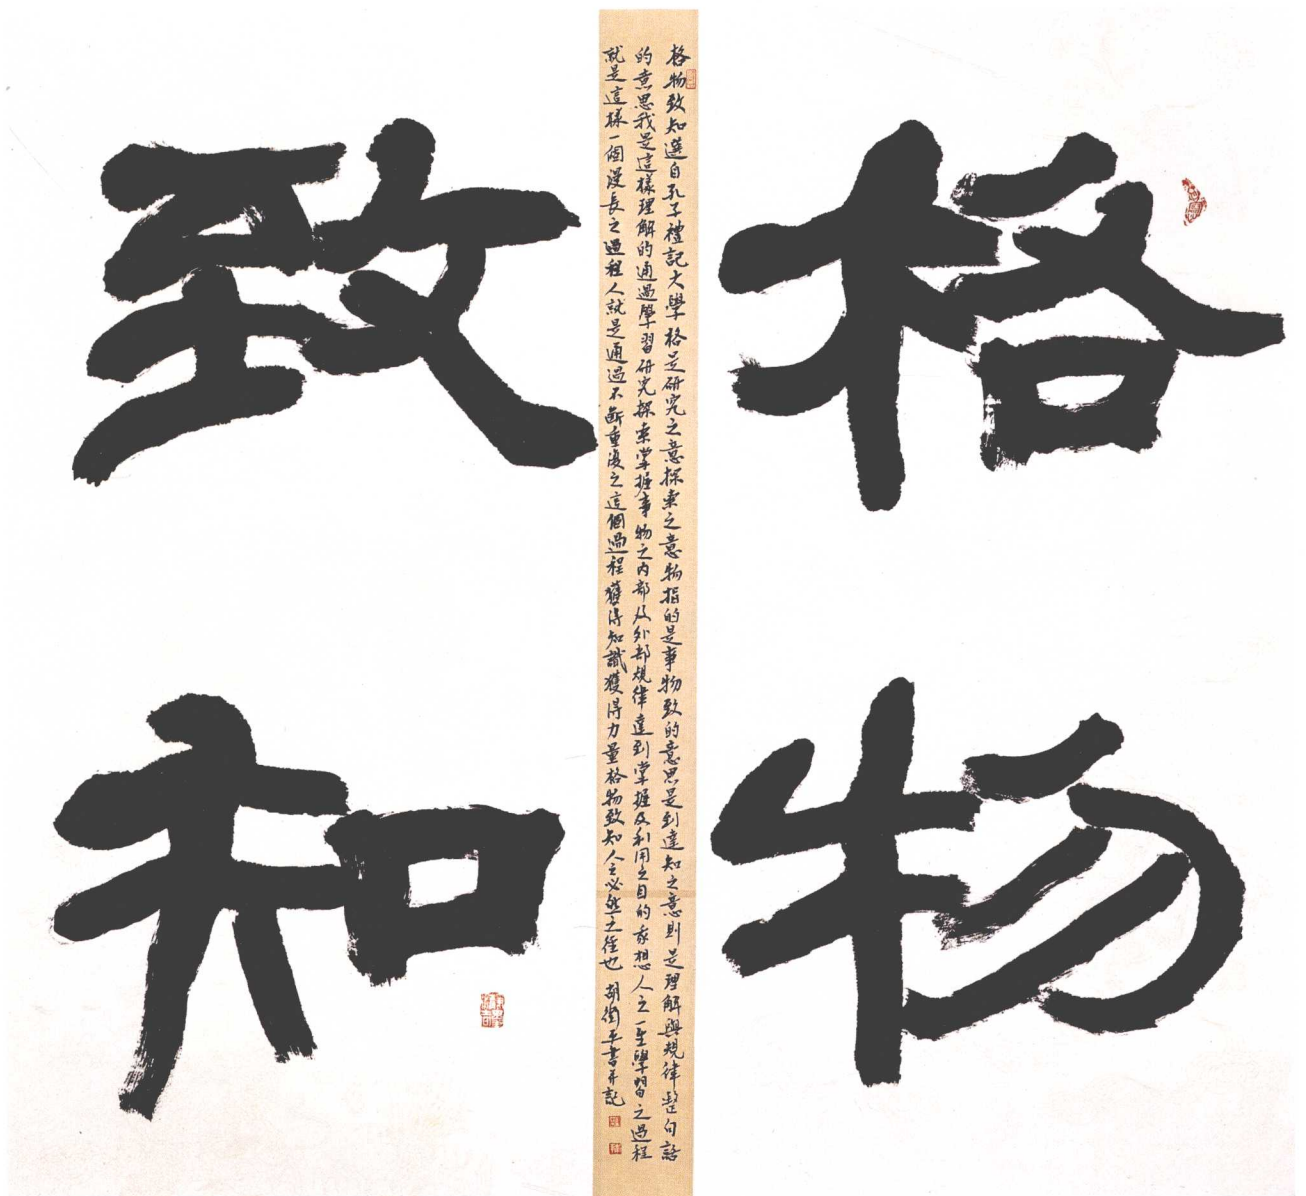 格物
致知
格物致知選自孔子禮記大學格是研究之意探索之意物指的是事物致的意思是到達知之意則是理解與規律整句話
的意思我是這樣理解的通過學習研究探索掌握事物之內部及外部規律達到掌握及利用之目的我想人之一生學習之過程
就是這樣一個漫長之過程人就是通過不斷重復之這個過程獲得知識獲得力量格物致知人之必然之徑也 胡衛平書并記